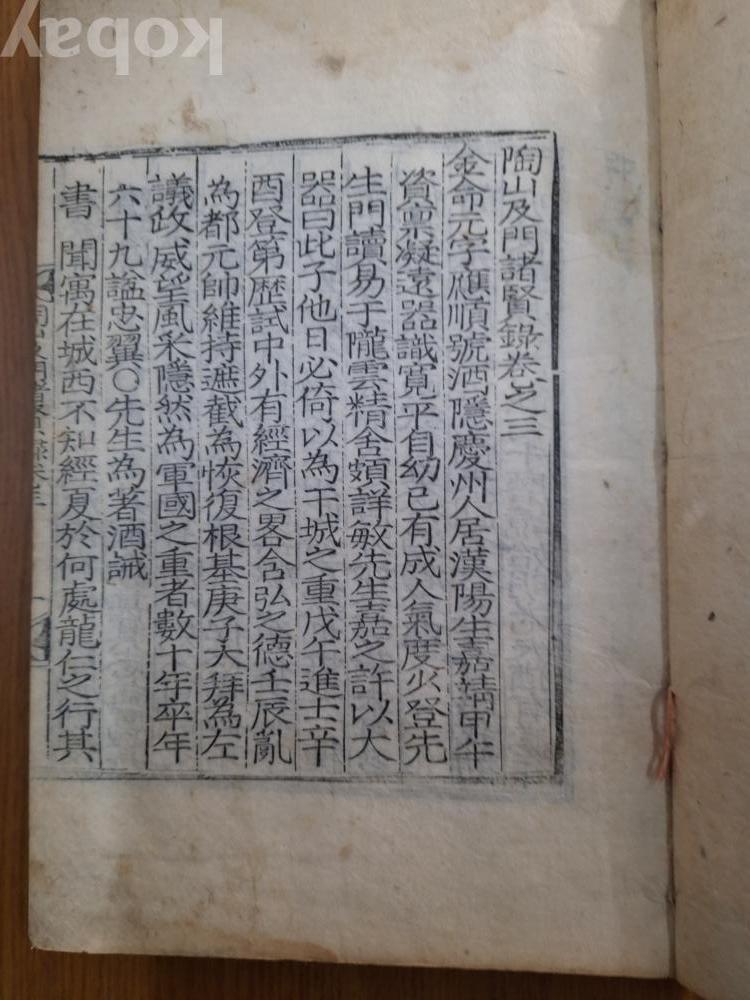 kobay
陶山及門諸賢錄卷之三
金命元字應順號酒隱慶州人居漢陽生嘉靖甲午
資禀凝遠器識寬平自幼已有成人氣度少登先
生門讀易于隴雲精舍頗詳敏先生嘉之許以大
器曰此子他日必倚以為干城之重戊午進士辛
酉登第歷試中外有經濟之畧含弘之德壬辰亂
為都元帥維持遮截為恢復根基庚子大拜為左
議政威望風采隱然為軍國之重者數十年卒年
六十九謚忠翼○先生為著酒誡
書 聞寓在城西不知經夏於何處龍仁之行其